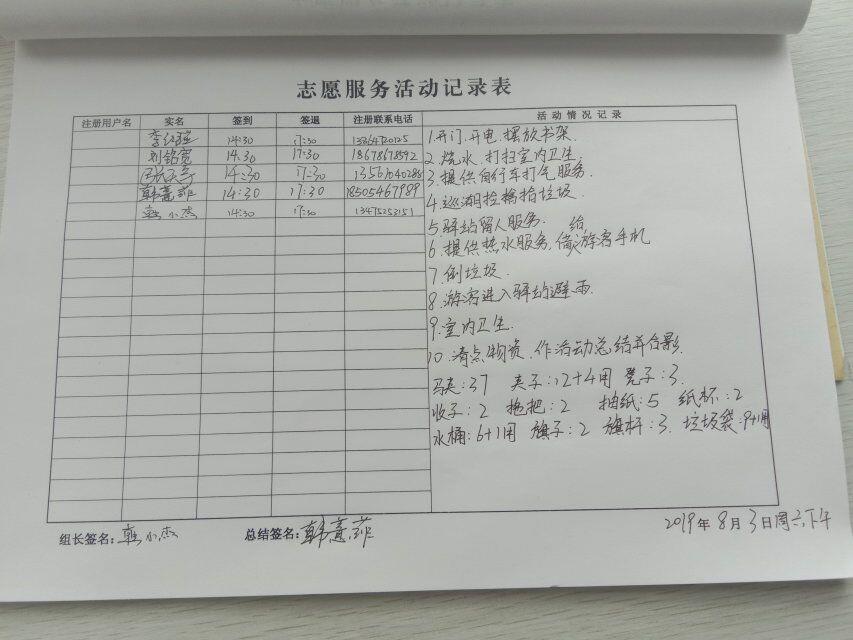 志愿服务活动记录表
注册用户名 实名 签到 签退 注册联系电话 活动情况记录
14:30 17:30 13364720125
刘铭宽 14:30 17:30 18678678592
14:30 17:30 13561040288
韩意菲 14:30 17:30 18505467989
韩小杰 14:30 17:30 13475253151
1.开门.开电.摆放书架.
2.烧水.打扫室内卫生.
3.提供自行车打气服务.
4.巡湖捡拾垃圾.
5.驿站留人服务.
6.提供热水服务.借给游客手机
7.倒垃圾.
8.游客进入驿站避雨.
9.室内卫生.
10.清点物资.作活动总结并合影.
马夹:37 夹子:12+4用 凳子:3.
收子:2 拖把:2 抽纸:5 纸杯:2
水桶:6+1用 旗子:2 旗杆:3. 垃圾袋:9+1用
组长签名:韩小杰 总结签名:韩意菲 2019年8月3日周六下午